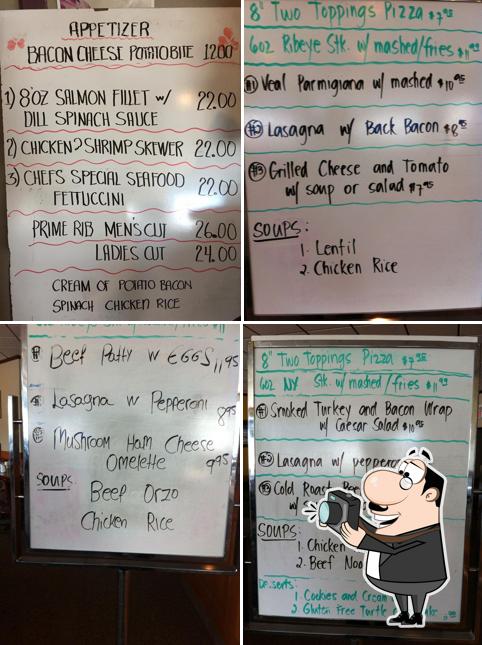 APPETIZER
BACON CHEESE POTATO BITE 12.00
1) 8OZ SALMON FILLET W/ 22.00
DILL SPINACH SAUCE
2) CHICKEN & SHRIMP SKEWER 22.00
3) CHEFS SPECIAL SEAFOOD 22.00
FETTUCCINI
PRIME RIB MEN'S CUT 26.00
LADIES CUT 24.00
CREAM OF POTATO BACON
SPINACH CHICKEN RICE
8" Two Toppings Pizza $7.95
6oz Ribeye Stk. w/ mashed/fries $11.95
#1 Veal Parmigiana w/ mashed $10.95
#2 Lasagna w/ Back Bacon $8.95
#3 Grilled Cheese and Tomato
w/ soup or salad $7.95
SOUPS:
1. Lentil
2. Chicken Rice
Beef Patty W EGGS 11.95
Lasagna W Pepperoni 8.95
Mushroom Ham Cheese
Omelette 9.95
SOUPS
Beef Orzo
Chicken Rice
8" Two Toppings Pizza $7.95
6oz NY Stk. w/ mashed/fries $11.95
#1 Smoked Turkey and Bacon Wrap
w/ Caesar Salad $10.95
#2 Lasagna w/
#3 Cold Roast
SOUPS:
1. Chicken
2. Beef
1. Cookies and Cream
2. Gluten Free Turtle